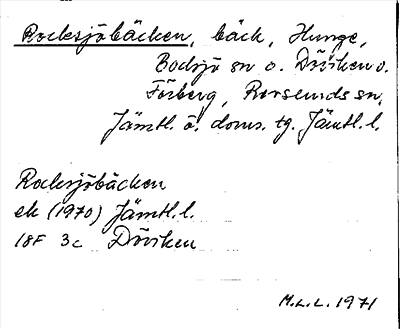 Rocksjöbäcken, bäck, Hunge,
Bodsjö sn o. Döviken o.
Fösberg, Revsunds sn,
Jämtl. ö. doms. tg. Jämtl. l.
Rocksjöbäcken
ek (1970) Jämtl. l.
18F 3c Döviken
M.L.L. 1971